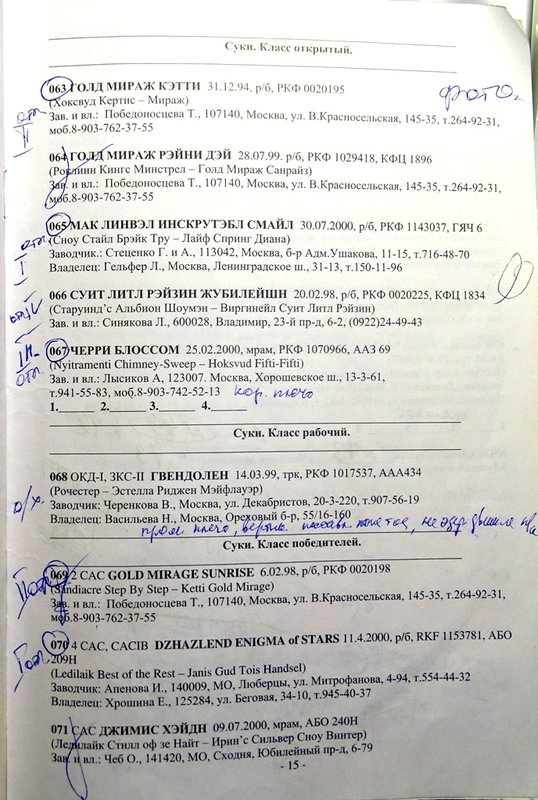 Суки. Класс открытый.
063 ГОЛД МИРАЖ КЭТТИ 31.12.94, р/б, РКФ 0020195
(Хоксвуд Кертис – Мираж)
Зав. и вл.: Победоносцева Т., 107140, Москва, ул. В.Красносельская, 145-35, т.264-92-31,
моб.8-903-762-37-55
фото
отл II
064 ГОЛД МИРАЖ РЭЙНИ ДЭЙ 28.07.99. р/б, РКФ 1029418, КФЦ 1896
(Роклинн Кингс Минстрел – Голд Мираж Санрайз)
Зав. и вл.: Победоносцева Т., 107140, Москва, ул. В.Красносельская, 145-35, т.264-92-31,
моб.8-903-762-37-55
065 МАК ЛИНВЭЛ ИНСКРУТЭБЛ СМАЙЛ 30.07.2000, р/б, РКФ 1143037, ГЯЧ 6
(Сноу Стайл Брэйк Тру – Лайф Спринг Диана)
Заводчик.: Стеценко Г. и А., 113042, Москва, б-р Адм.Ушакова, 11-15, т.716-48-70
Владелец: Гельфер Л., Москва, Ленинградское ш., 31-13, т.150-11-96
отл I
066 СУИТ ЛИТЛ РЭЙЗИН ЖУБИЛЕЙШН 20.02.98, р/б, РКФ 0020225, КФЦ 1834
(Старуинд’с Альбион Шоумэн – Виргинейл Суит Литл Рэйзин)
Зав. и вл.: Синякова Л., 600028, Владимир, 23-й пр-д, 6-2, (0922)24-49-43
067 ЧЕРРИ БЛОССОМ 25.02.2000, мрам, РКФ 1070966, ААЗ 69
(Nyitramenti Chimney-Sweep – Hoksvud Fifti-Fifti)
Зав. и вл.: Лысиков А, 123007. Москва, Хорошевское ш., 13-3-61,
т.941-55-83, моб.8-903-742-52-13 кор. плечо
отл
1.______ 2.______ 3.______ 4.______
Суки. Класс рабочий.
068 ОКД-I, ЗКС-II ГВЕНДОЛЕН 14.03.99, трк, РКФ 1017537, ААА434
(Рочестер – Эстелла Риджен Мэйфлауэр)
Заводчик: Черенкова В., Москва, ул. Декабристов, 20-3-220, т.907-56-19
Владелец: Васильева Н., Москва, Ореховый б-р, 55/16-160
о/х.
прям плечо,
Суки. Класс победителей.
069 2 САС GOLD MIRAGE SUNRISE 6.02.98, р/б, РКФ 0020198
(Sandiacre Step By Step – Ketti Gold Mirage)
Зав. и вл.: Победоносцева Т., 107140, Москва, ул. В.Красносельская, 145-35, т.264-92-31,
моб.8-903-762-37-55
070 4 САС, CACIB DZHAZLEND ENIGMA of STARS 11.4.2000, р/б, RKF 1153781, АБО
209Н
(Ledilaik Best of the Rest – Janis Gud Tois Handsel)
Заводчик: Апенова И., 140009, МО, Люберцы, ул. Митрофанова, 4-94, т.554-44-32
Владелец: Хрошина Е., 125284, ул. Беговая, 34-10, т.945-40-37
071 САС ДЖИМИС ХЭЙДН 09.07.2000, мрам, АБО 240Н
(Ледилайк Стилл оф зе Найт – Ирин’с Сильвер Сноу Винтер)
Зав. и вл.: Чеб О., 141420, МО, Сходня, Юбилейный пр-д, 6-79
- 15 -